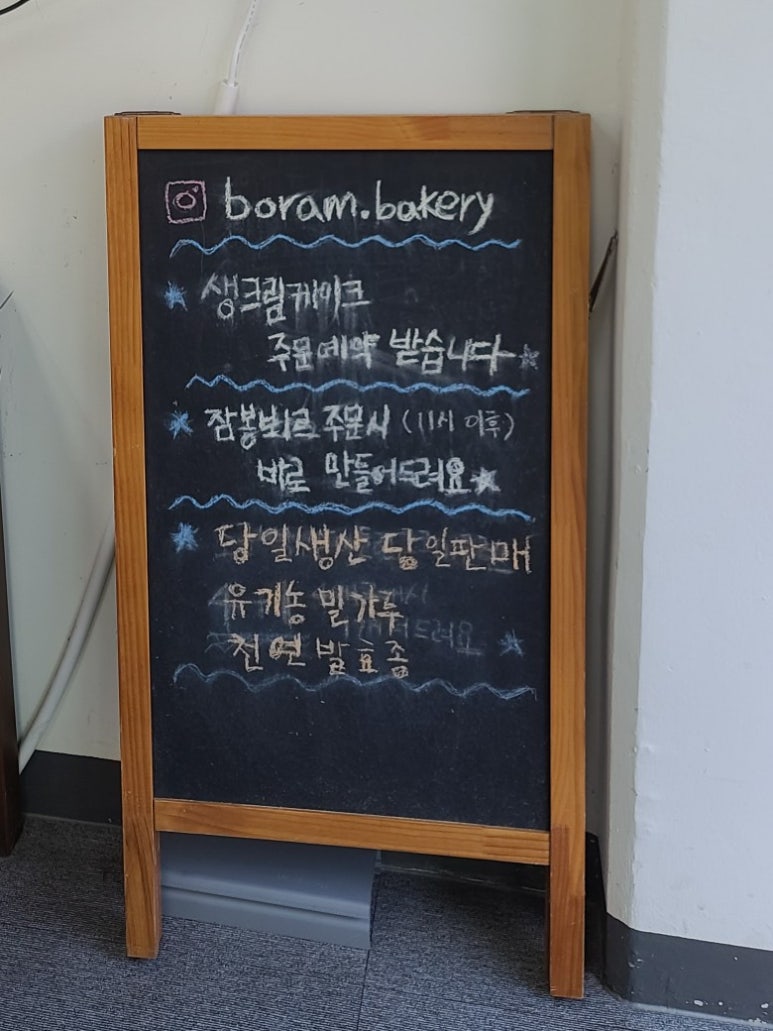 boram.bakery
생크림케이크
주문예약 받습니다
잠봉뵈르 주문시 (11시 이후)
바로 만들어드려요
당일생산 당일판매
유기농 밀가루
천연발효종